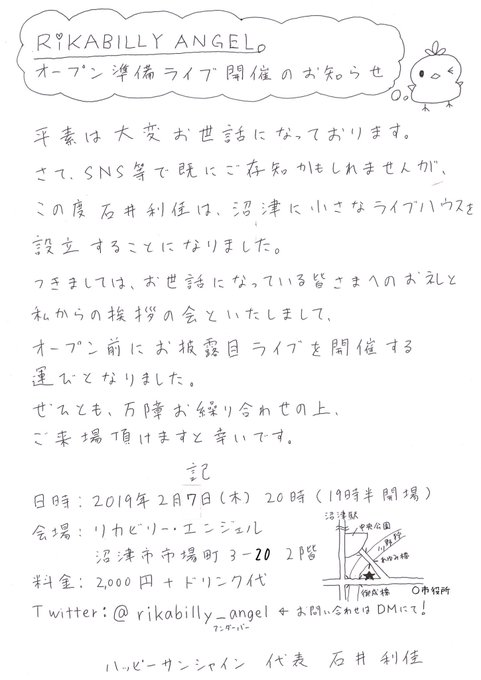 RiKABILLY ANGEL。
オープン準備ライブ開催のお知らせ
平素は大変お世話になっております。
さて、SNS等で既にご存知かもしれませんが、
この度石井利佳は、沼津に小さなライブハウスを
設立することになりました。
つきましては、お世話になっている皆さまへのお礼と
私からの挨拶の会といたしまして、
オープン前にお披露目ライブを開催する
運びとなりました。
ぜひとも、万障お繰り合わせの上、
ご来場頂けますと幸いです。
記
日時：2019年2月7日(木) 20時(19時半開場)
会場：リカビリー・エンジェル
沼津市市場町3-20 2階
料金：2,000円+ドリンク代
Twitter：@rikabilly_angel ← お問い合わせはDMにて!
アンダーバー
沼津駅
中央公園
狩野川
あゆみ橋
御成橋
市役所
ハッピーサンシャイン 代表 石井利佳